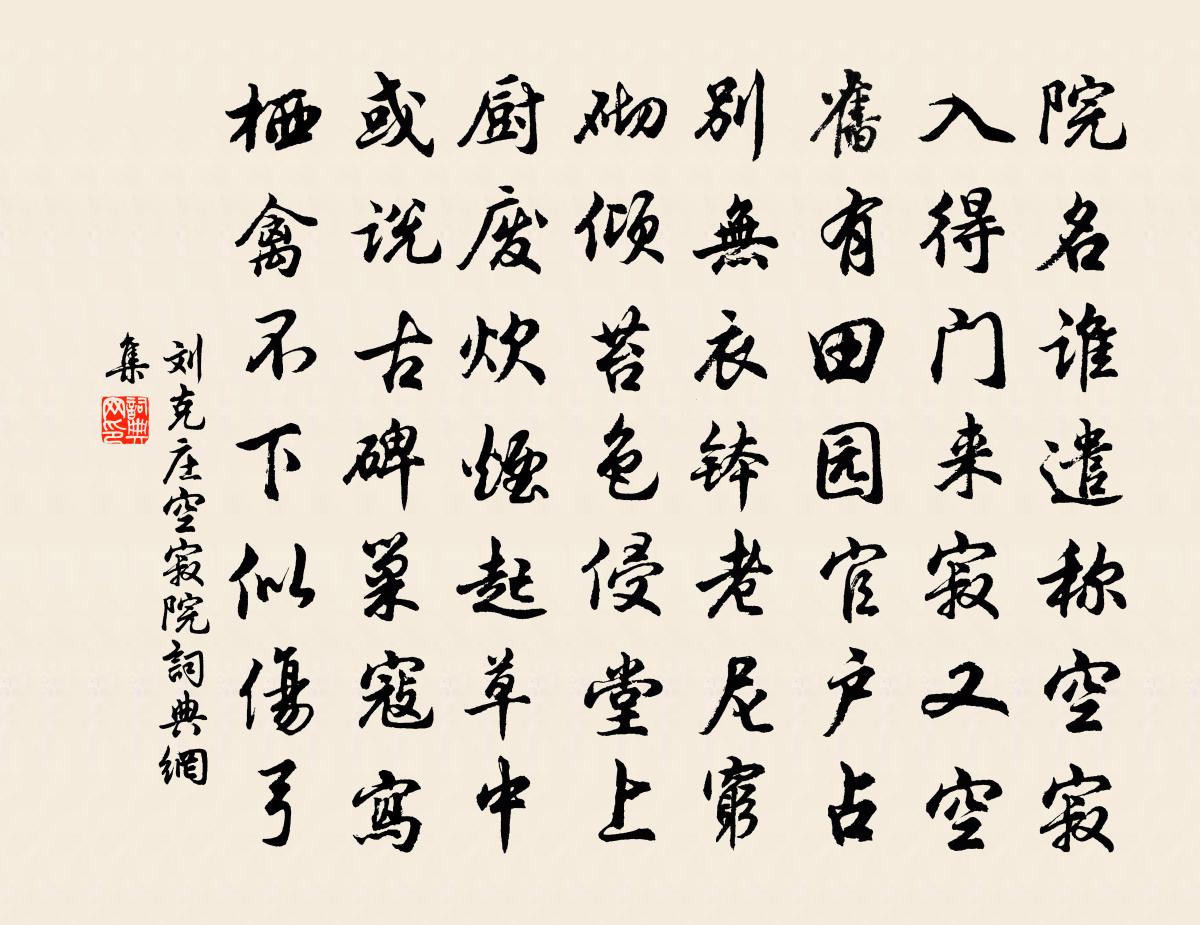 院名谁遣称空寂
入得门来寂又空
旧有田园官户占
别無衣钵老尼窮
砌倾苔色侵堂上
厨废炊煙起草中
或说古碑巢寇寫
栖禽不下似傷弓
刘克庄空寂院詞典網
集
詞典
网印